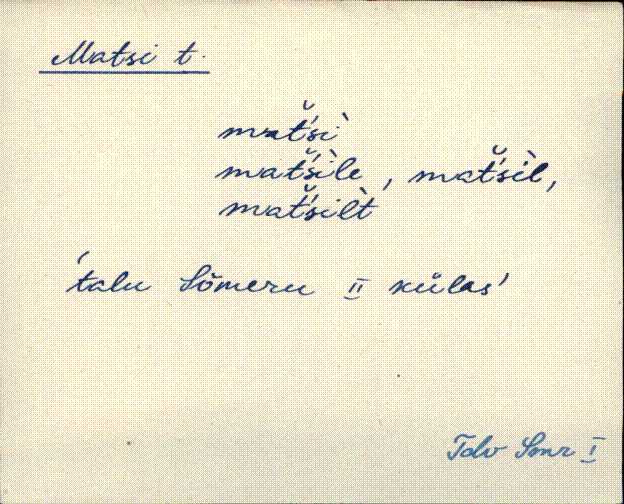 Matsi t.
mat̆'sì
mat̆'sìle, mat̆'sìl,
mat̆'silt̀
'talu Sõmeru II külas'
Tdv Smr I